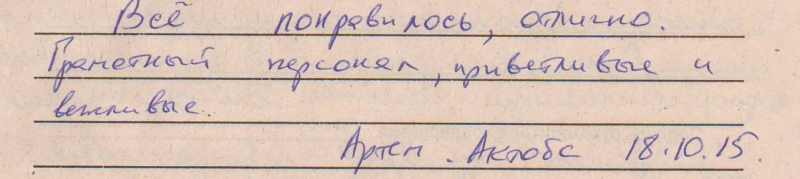 Всё понравилось, отлично.
Грамотный персонал, приветливые и
вежливые.
Артем. Актобе 18.10.15.